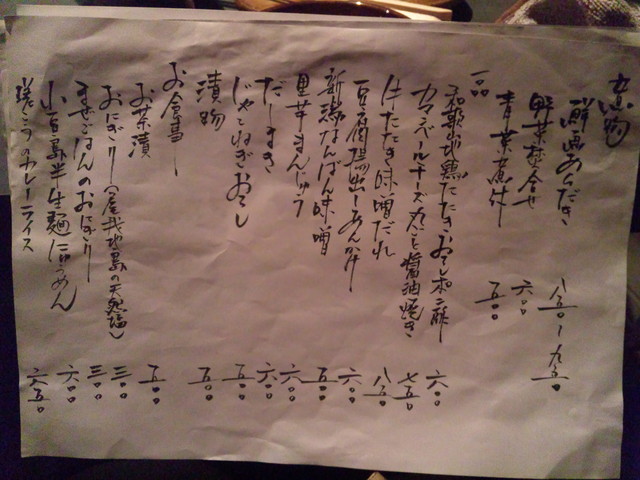 煮物
鮮魚あらだき 八五〇〜九五〇
野菜炊合せ 六〇〇
青菜煮付 五〇〇
一品
和歌山地鶏たたきおろしポン酢 六〇〇
カマンベールチーズ丸ごと醤油焼き 七五〇
牛たたき味噌だれ 八五〇
豆腐揚出しあんかけ 六〇〇
新潟なんばん味噌 五〇〇
里芋まんじゅう 六〇〇
だしまき 六〇〇
じゃこねぎおろし 五五〇
漬物 五〇〇
お食事
お茶漬 五〇〇
おにぎり(屋我地島の天然塩) 三〇〇
まぜごはんのおにぎり 三〇〇
小豆島半生麺にゅうめん 六〇〇
カレーライス 六五〇